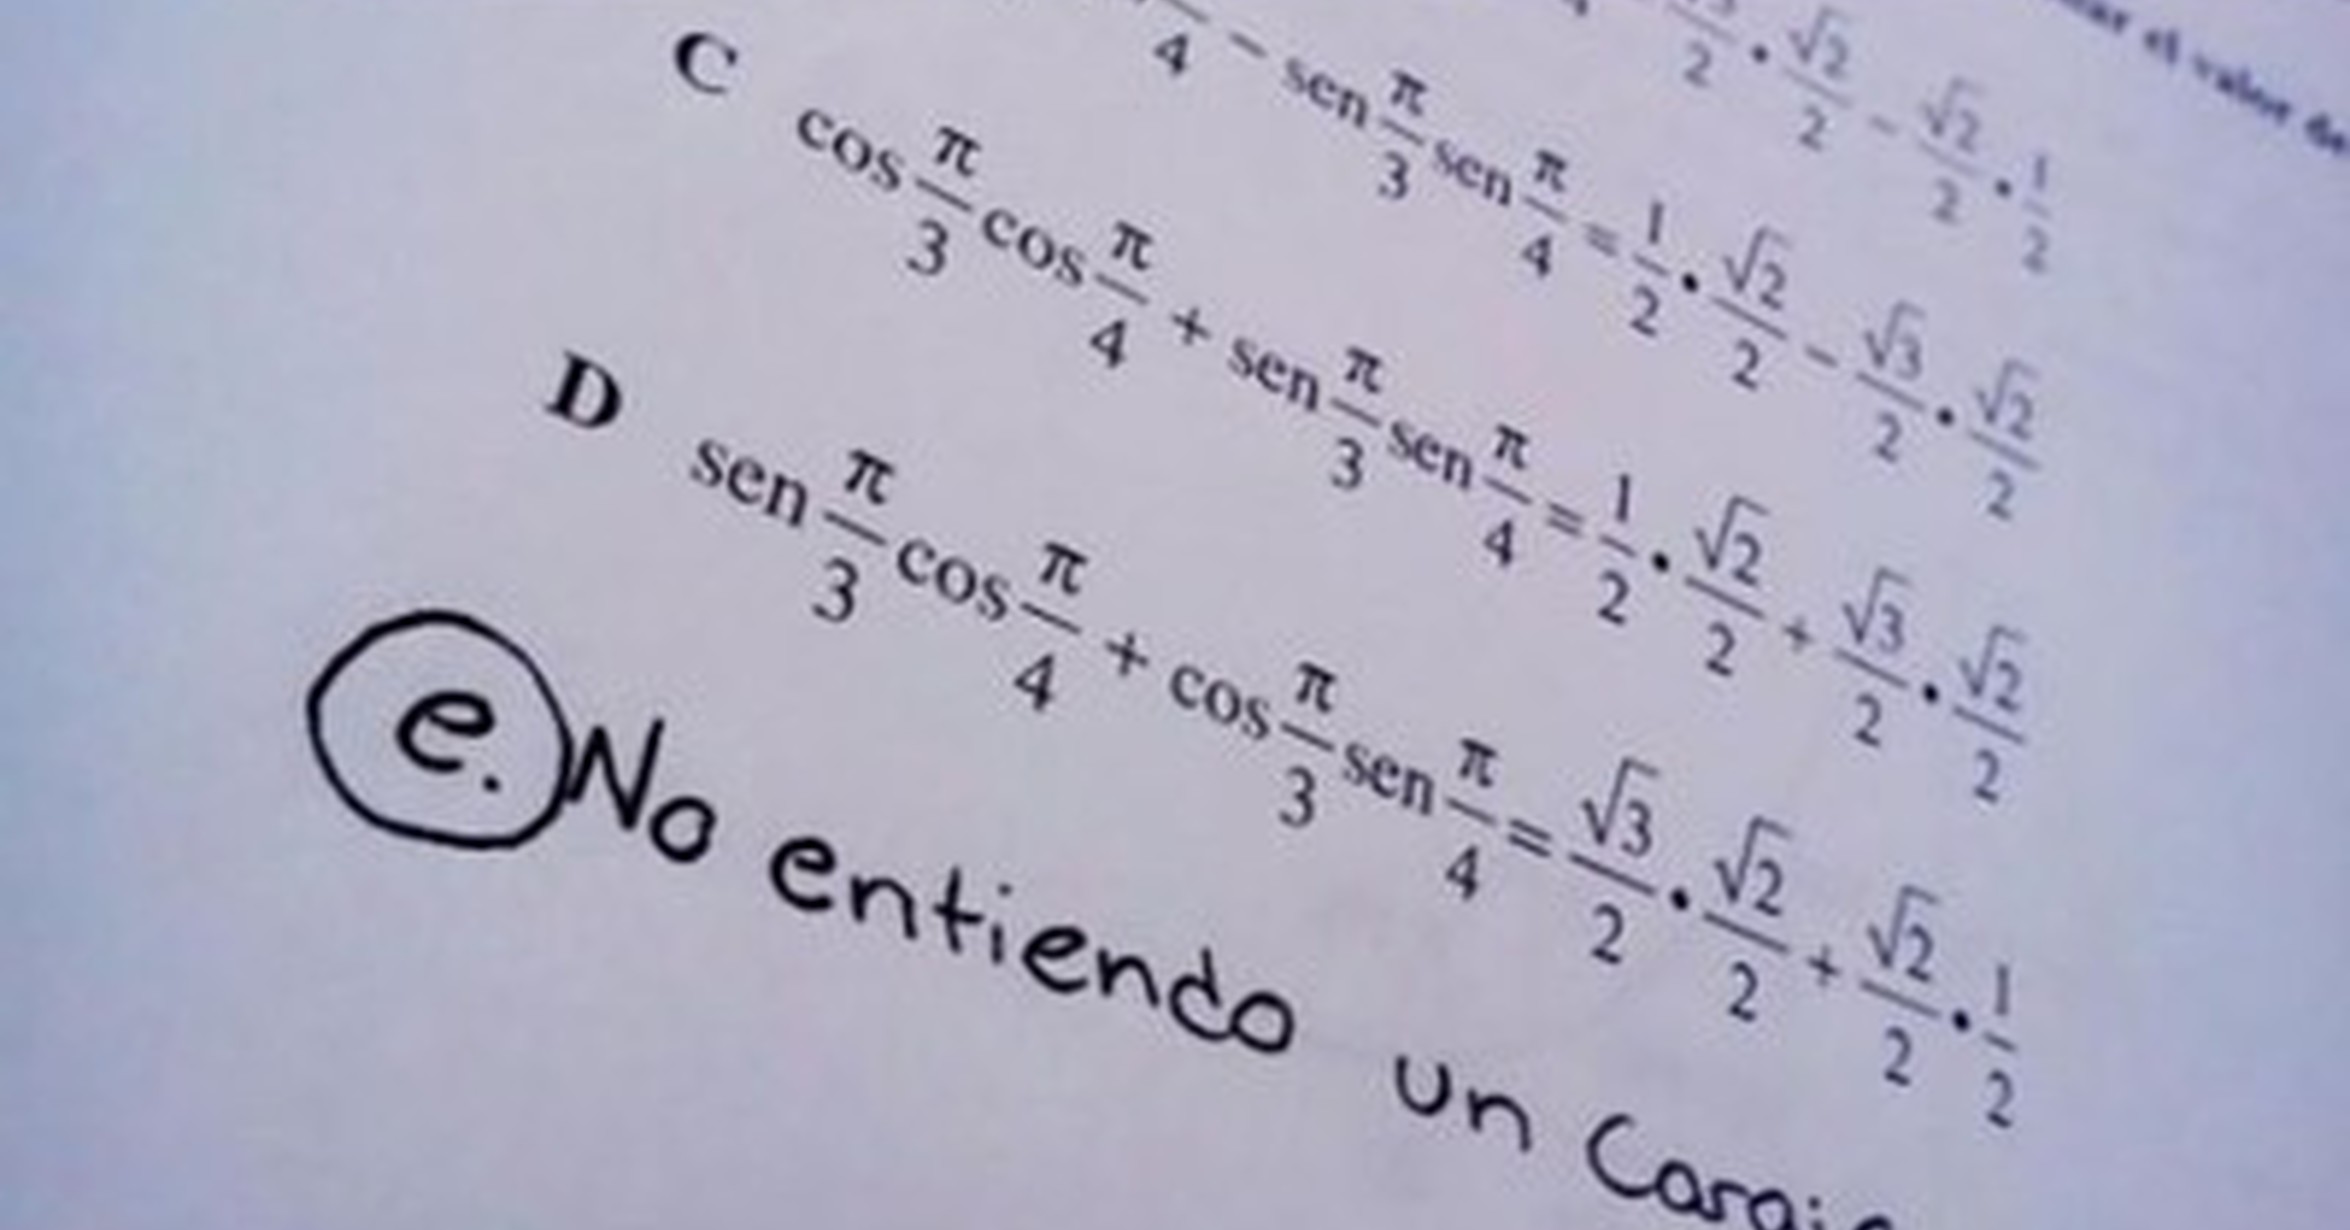 ar el valor de
√2/2 - √2/2 • 1/2
4 - sen π/3 sen π/4 = 1/2 • √2/2 - √3/2 • √2/2
C cos π/3 cos π/4 + sen π/3 sen π/4 = 1/2 • √2/2 + √3/2 • √2/2
D sen π/3 cos π/4 + cos π/3 sen π/4 = √3/2 • √2/2 + √2/2 • 1/2
e. No entiendo un Carajo